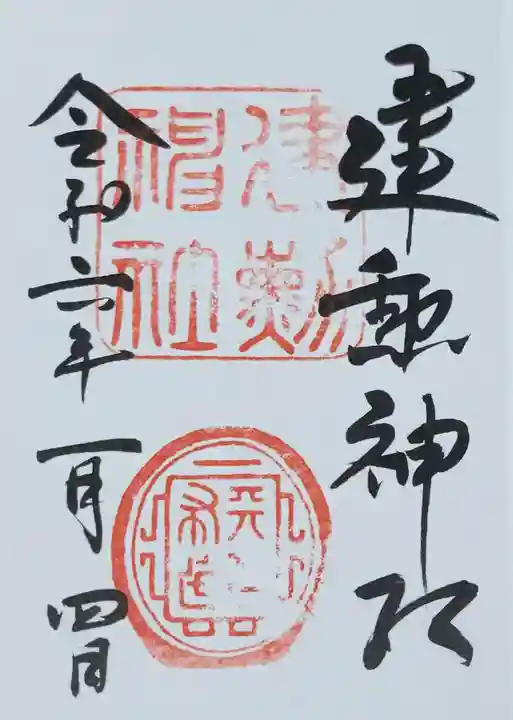 建勲神社
建勲
神社
令和六年一月四日